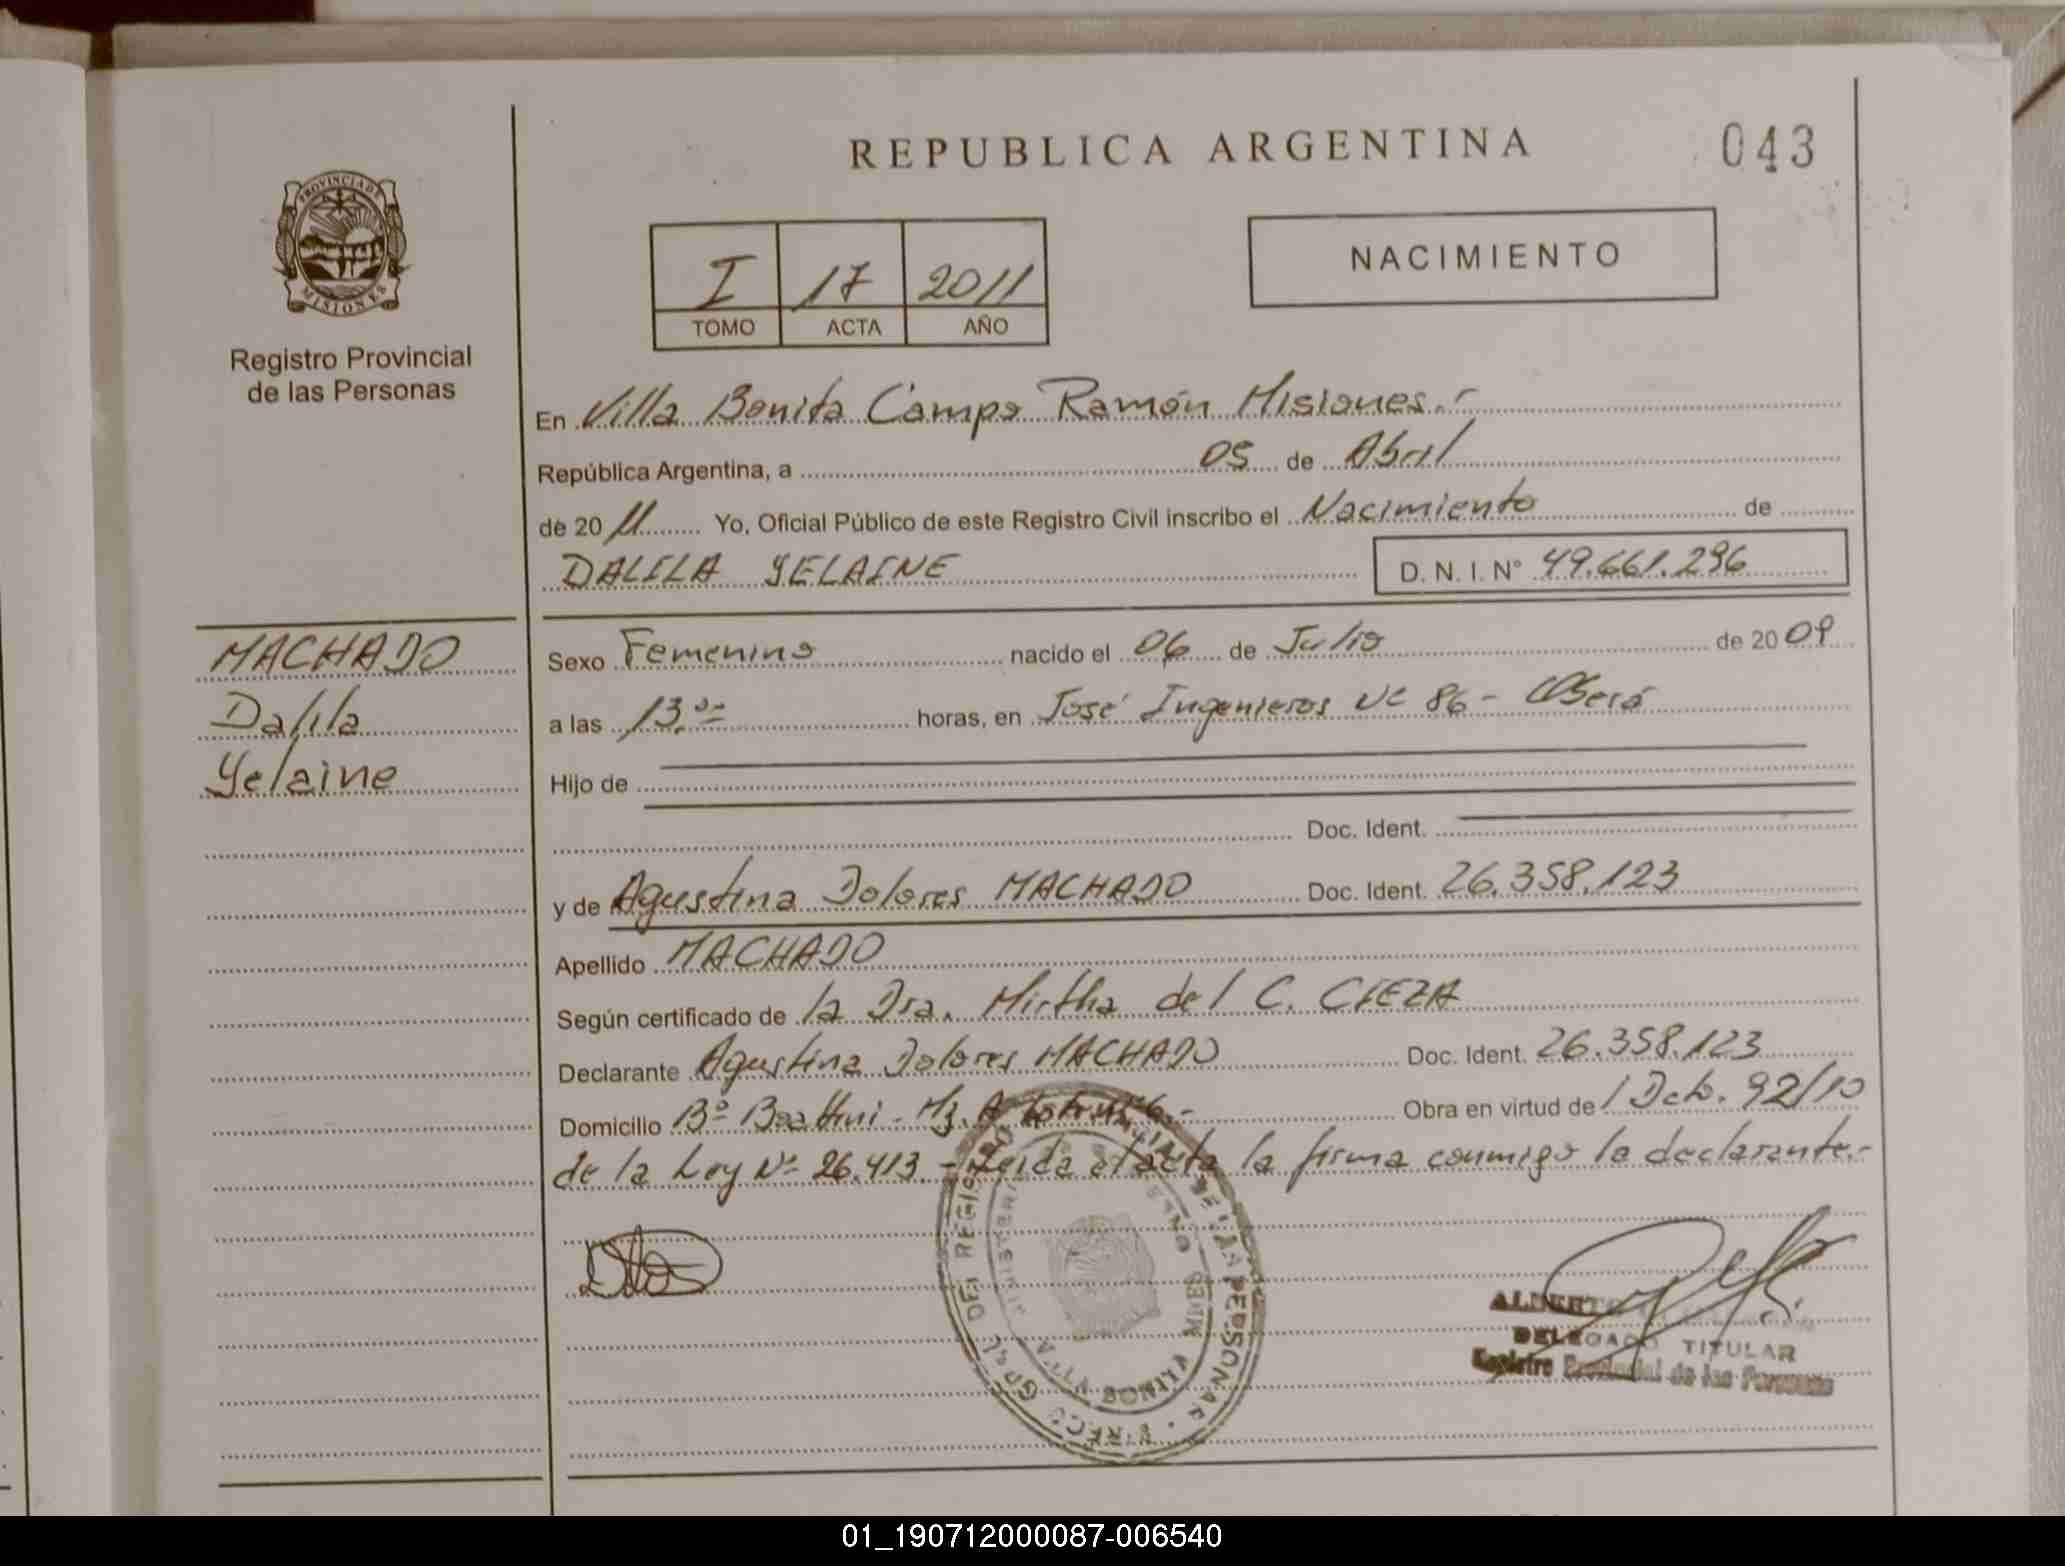 REPUBLICA ARGENTINA
043
PROVINCIA DE
MISIONES
Registro Provincial
de las Personas
I 17 2011
TOMO ACTA AÑO
NACIMIENTO
En Villa Bonita Campo Ramón Misiones.-
República Argentina, a 05 de Abril
de 20 11 Yo, Oficial Público de este Registro Civil inscribo el Nacimiento de
DALILA YELAINE D. N. I. N° 49.661.296
MACHADO
Dalila
Yelaine
Sexo Femenino nacido el 06 de Julio de 20 09
a las 13.00 horas, en José Ingenieros N° 86 - Oberá
Hijo de
Doc. Ident.
y de Agustina Dolores MACHADO Doc. Ident. 26.358.123
Apellido MACHADO
Según certificado de la Dra. Mirtha del C. CIEZA
Declarante Agustina Dolores MACHADO Doc. Ident. 26.358.123
Domicilio B° Beattini - Mz. A Obra en virtud de l Dcto. 92/10
de la Ley N° 26.413 - Leida el acta la firma conmigo la declarante.-
ALBERTO
DELEGADO TITULAR
Registro Provincial de las Personas
01_190712000087-006540